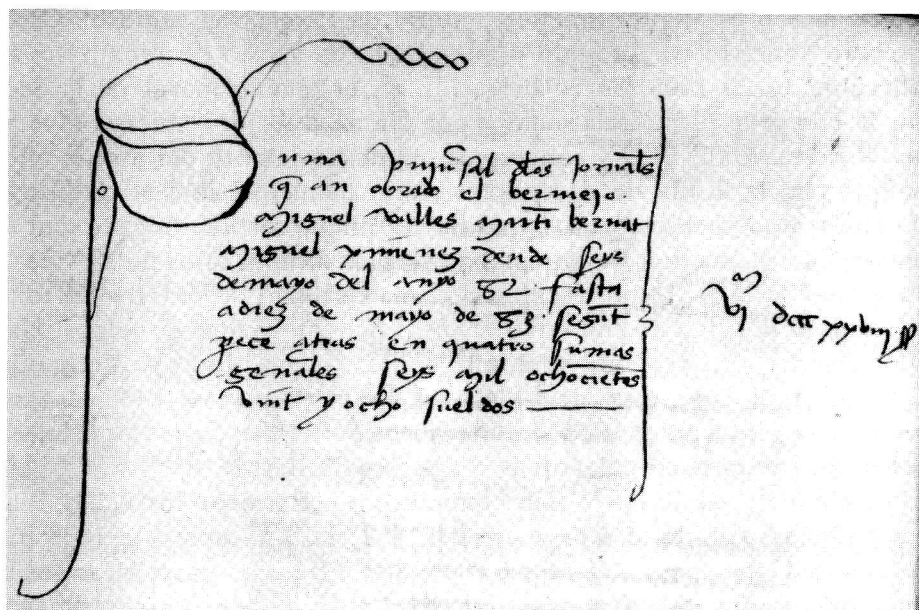 Suma universal dlos jornals
q an obrado el bermejo.
Miguel valles Marti bernat
Miguel ximenez dende seys
demayo del anyo 82 fasta
adiez de mayo de 83 segūt
pece atras en quatro sumas
genales seys mil ochocietos
vint y ocho sueldos
vi m dccc xxviii ss